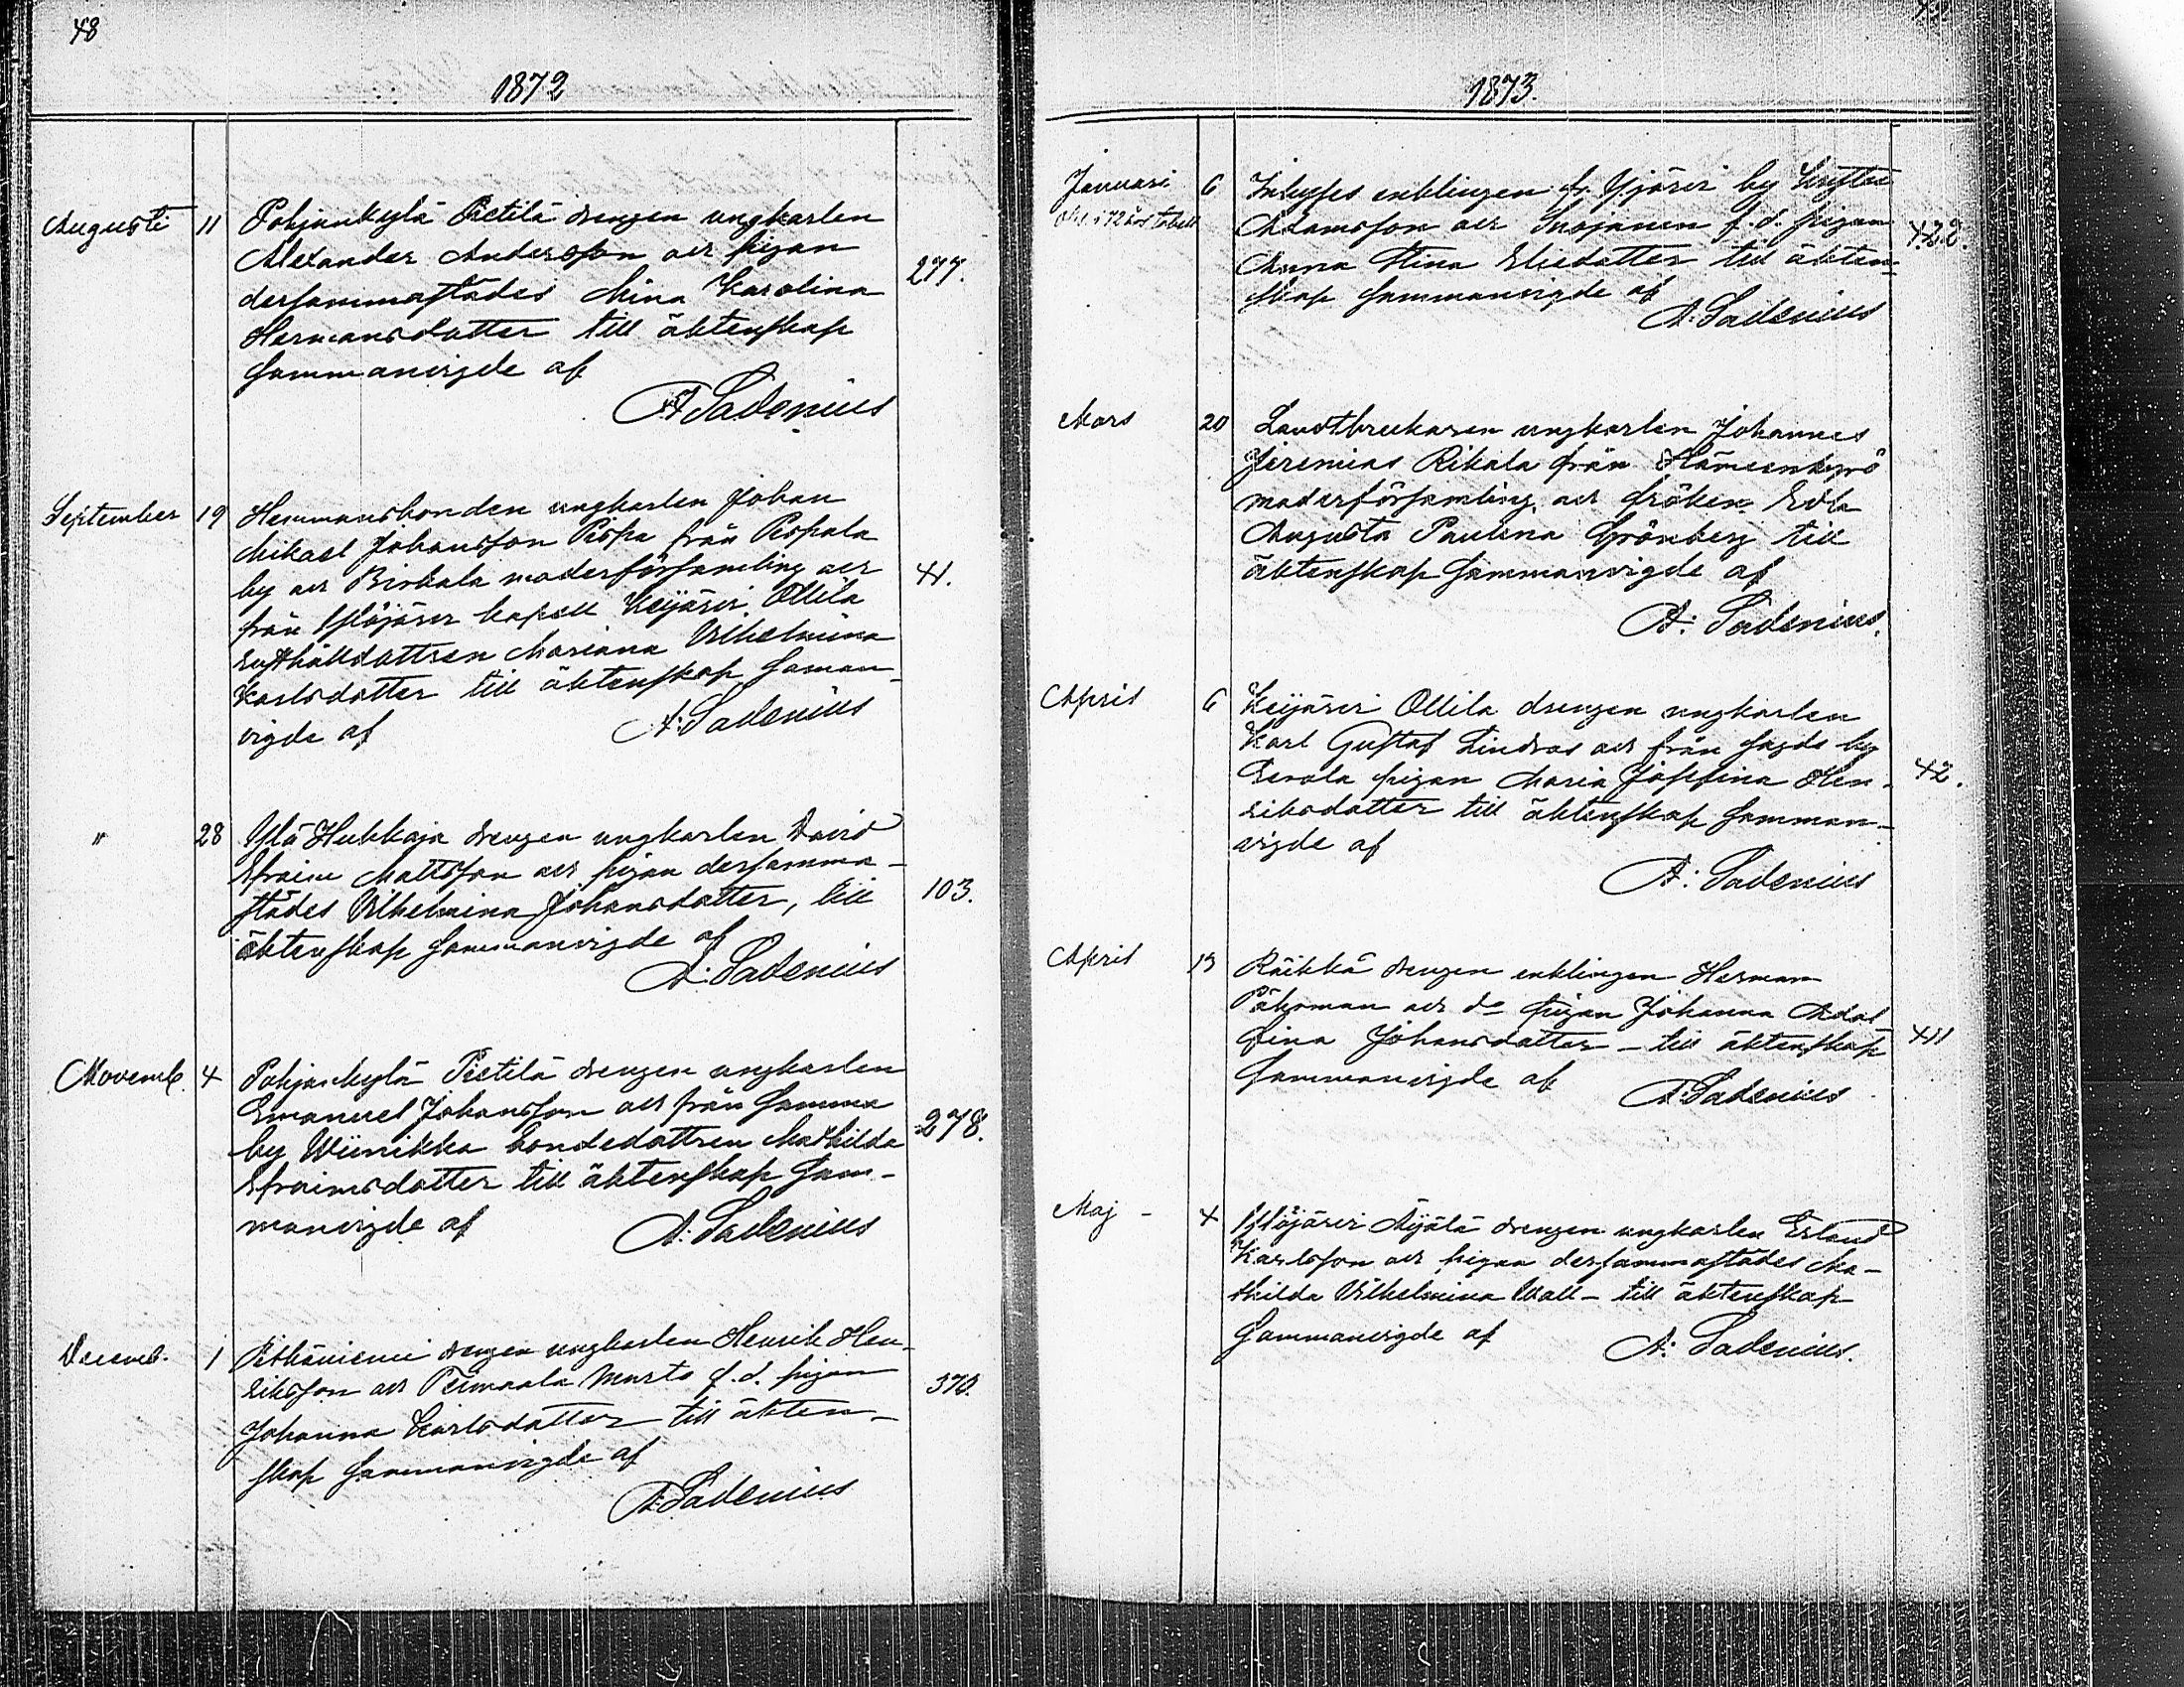 48
1872
Augusti 11 Pohjankylä Pietilä drengen ungkarlen
Alexander Andersson och pigan
dersammastädes Mina Karolina 277.
Hermansdotter till äktenskap
sammanvigde af
A Sadenius
September 19 Hemmansbonden ungkarlen Johan
Mikael Johansson Pispa från Pispala
by och Birkala moderförsamling och 41.
från Ylöjärvi kapell Keijärvi Ollila
rusthålldottren Mariana Vilhelmina
Karlsdotter till äktenskap samman-
vigde af A: Sadenius
" 28 Ylä Hukkaja drengen ungkarlen David
Efraim Mattsson och pigan dersamma-
städes Vilhelmina Johansdotter, till 103.
äktenskap sammanvigde af
A: Sadenius
Novemb. 4 Pohjankylä Pietilä drengen ungkarlen
Emanuel Johansson och från samma
by Wiinikka bondedottren Mathilda 278.
Efraimsdotter till äktenskap sam-
manvigde af A: Sadenius
Decemb. 1 Pitkäniemi drengen ungkarlen Henrik Hen-
riksson och Murto f.d. pigan 370.
Johanna Karlsdotter till äkten-
skap sammanvigde af
A: Sadenius
1873.
Januari 6 Inhyses enklingen fr. by
Adamsson och f.d. pigan 422.
Anna Stina till äkten-
skap sammanvigde af
A: Sadenius
Mars 20 Landtbrukaren ungkarlen Johannes
Jeremias Rikala från Hämeenkyrö
moderförsamling och fröken Edla
Augusta Paulina Grönberg till
äktenskap sammanvigde af
A: Sadenius.
April 6 Keijärvi Ollila drengen ungkarlen
Karl Gustaf Lindroos och från sagde by
Eerola pigan Maria Josefina Hen- 42.
riksdotter till äktenskap samman-
vigde af
A: Sadenius
April 13 Räikkä drengen enklingen Herman
Påhrman och do pigan Johanna Adol
fina Johansdotter - till äktenskap
sammanvigde af A: Sadenius
Maj - 4 Ylöjärvi Äijälä drengen ungkarlen Erland
Karlsson och pigan dersammastädes Ma-
thilda Vilhelmina Wall - till äktenskap
sammanvigde af A: Sadenius.